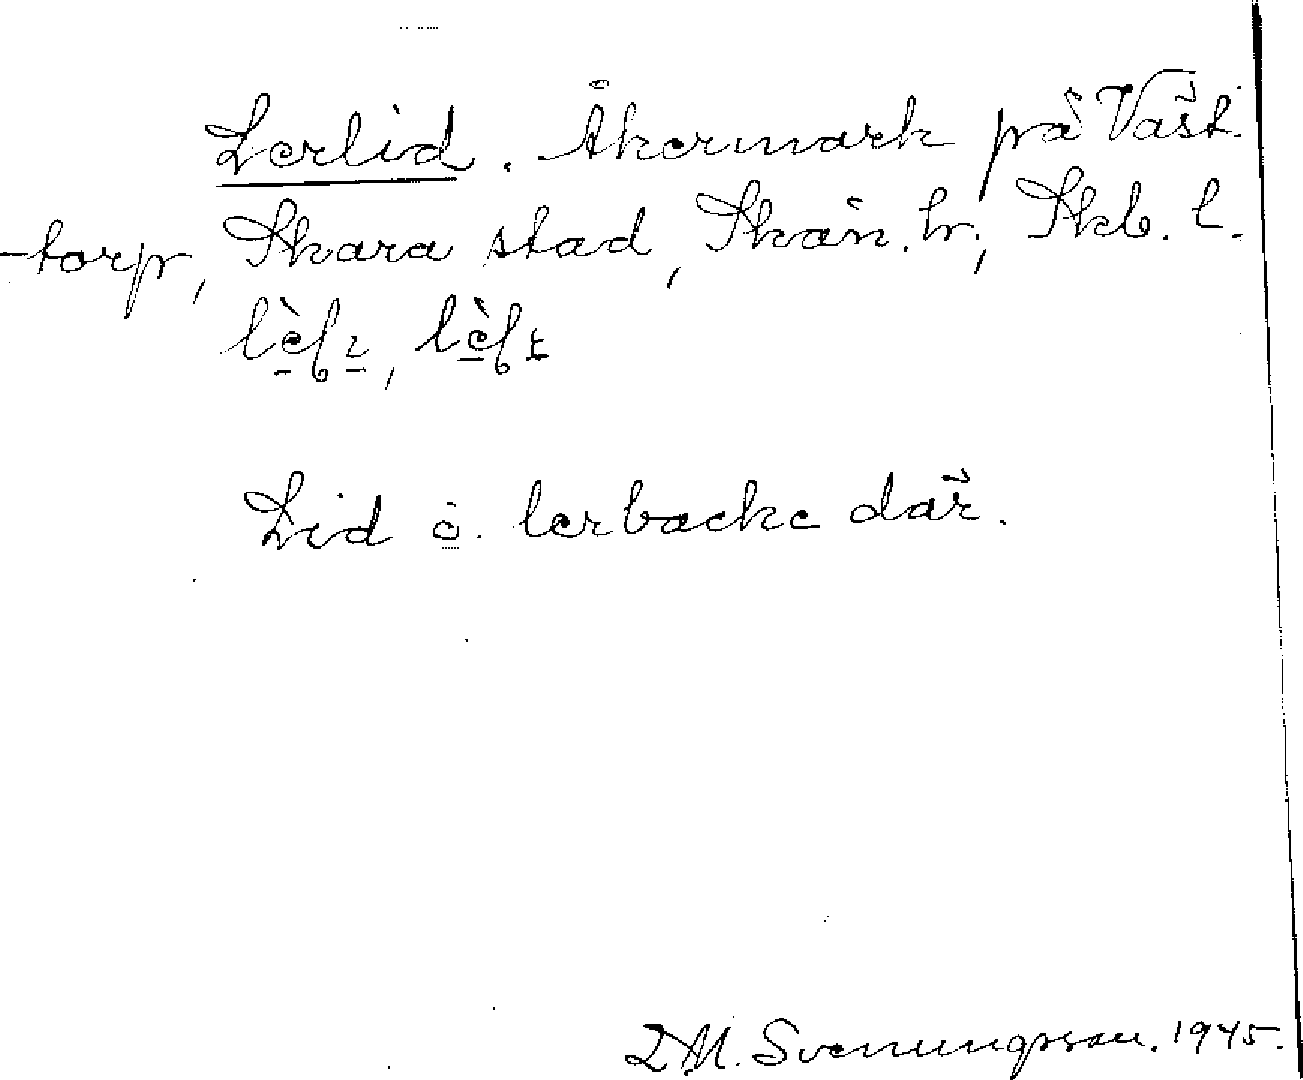 Lerlid. Åkermark på Väst-
-torp, Skara stad, Skån. hr, Skb. l.
Lid o. lerbacke där.
M. Svenungsson. 1945.